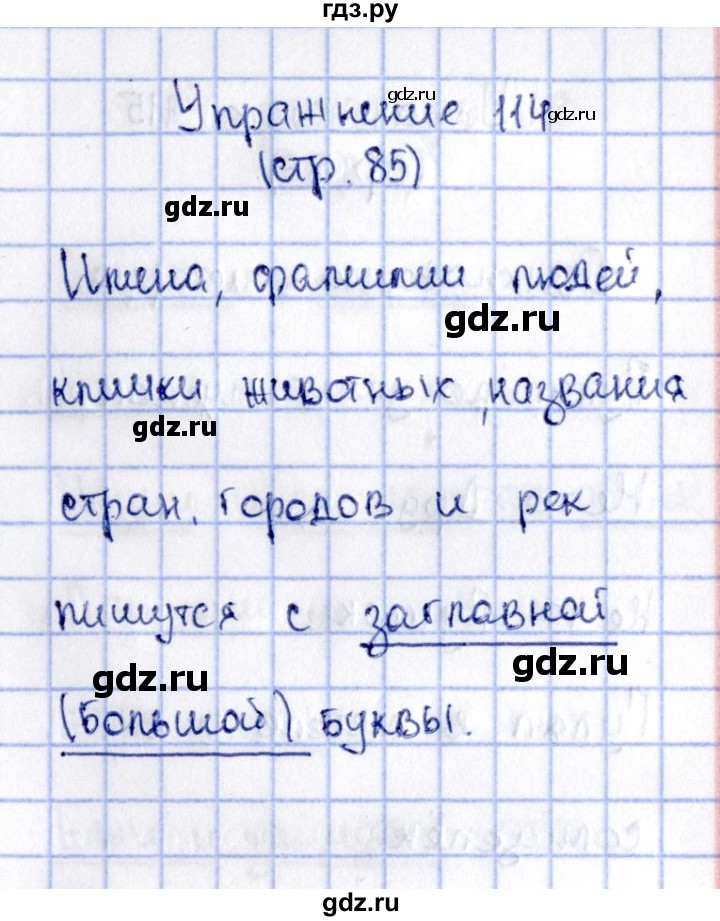 гдз.ру
Упражнение 114
gdz.ru
gdz.ru
(стр. 85)
gdz.ru
Имена, фамилии людей,
gdz.ru
клички животных, названия
gdz.ru
стран, городов и рек
пишутся с заглавной
gdz.ru
gdz.ru
(большой) буквы.
gdz.ru